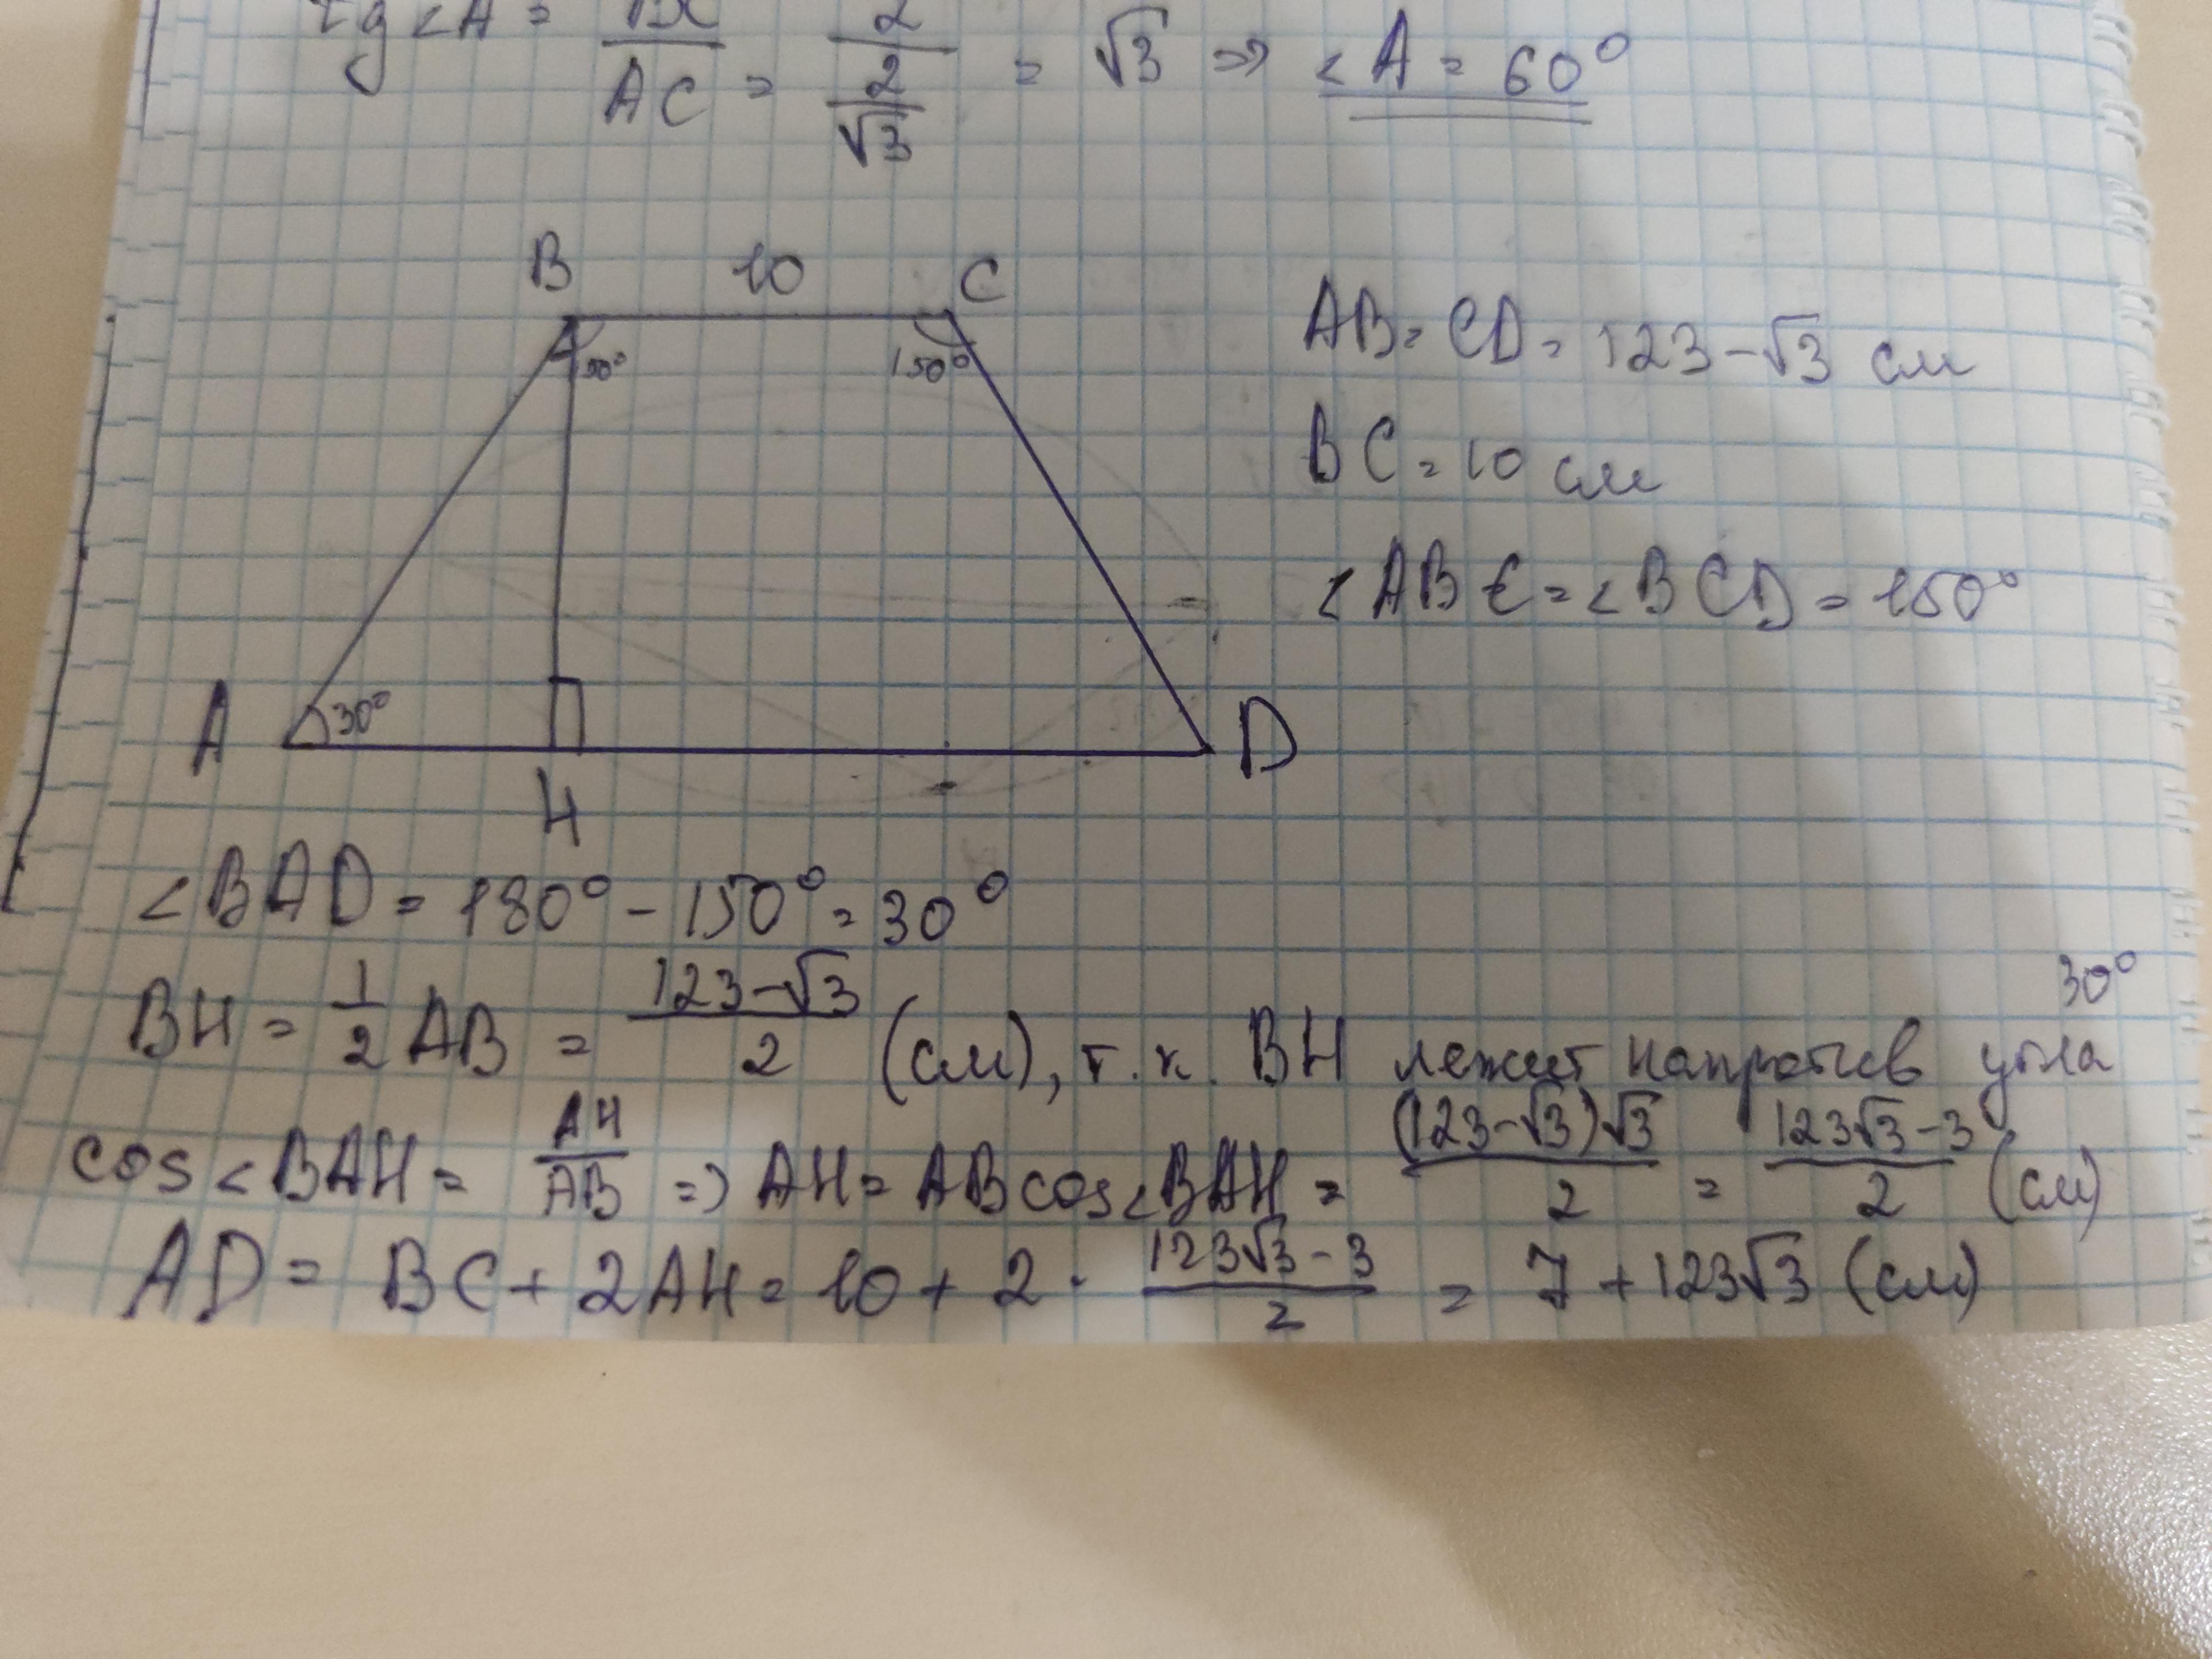 tg∠A = BC/AC = 2/(2/√3) = √3 ⇒ ∠A = 60°
B 10 C
150°
AB = CD = 123-√3 см
BC = 10 см
∠ABC = ∠BCD = 150°
A 30° D
H
∠BAD = 180° - 150° = 30°
BH = 1/2 AB = (123-√3)/2 (см), т.к. BH лежит напротив угла 30°
cos∠BAH = AH/AB => AH = AB cos∠BAH = (123-√3)√3/2 = (123√3-3)/2 (см)
AD = BC + 2AH = 10 + 2 · (123√3-3)/2 = 7 + 123√3 (см)